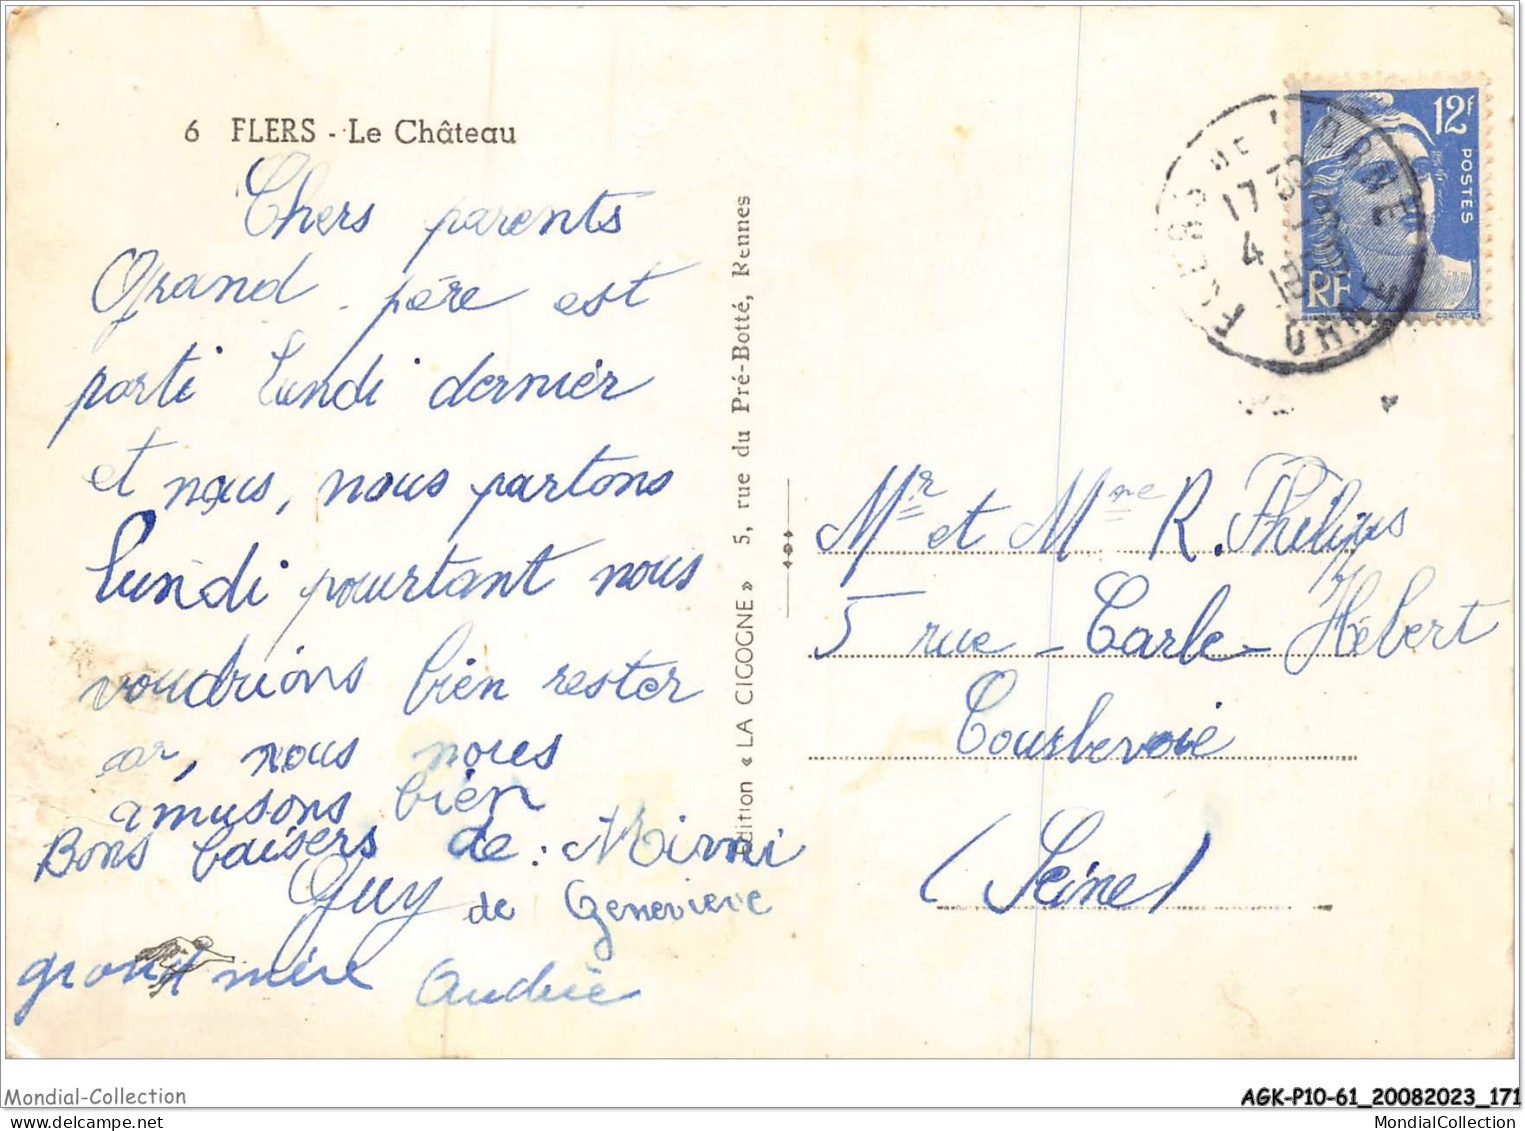 6 FLERS - Le Château
Chers parents
Grand-père est
parti lundi dernier
et nous, nous partons
lundi pourtant nous
voudrions bien rester
car, nous nous
amusons bien
Bons baisers de : Mimi
Guy de Geneviève
grand mère Andrée
Edition « LA CIGOGNE » 5, rue du Pré-Botté, Rennes
12f
POSTES
RF
FLERS DE L'ORNE
17 30
4
ORNE
Mr et Mme R. Philips
5 rue - Carle - Hébert
Courbevoie
(Seine)
Mondial-Collection
AGK-P10-61_20082023_171
MondialCollection